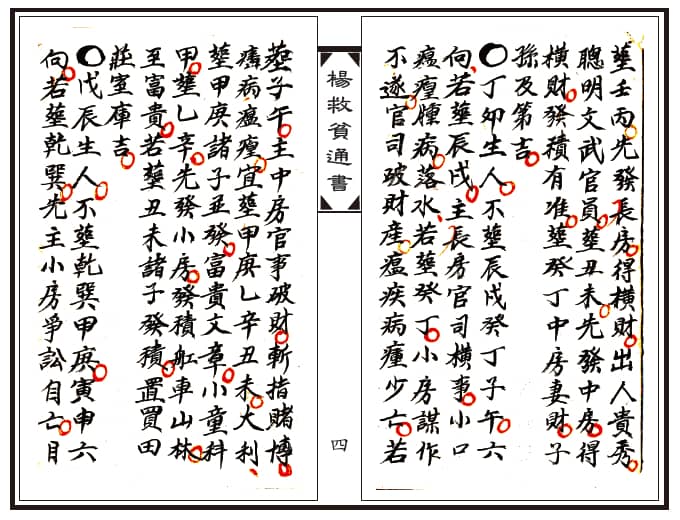 塟壬丙先發長房得橫財出人貴秀
聰明文武官員塟丑未先發中房得
橫財發積有准塟癸丁中房妻財子
孫及第吉
〇丁卯生人不塟辰戌癸丁子午六
向若塟辰戌主長房官司橫事小口
瘟㾮腫病落水若塟癸丁小房謀作
不遂官司破財産瘟疾病瘇少亡若
楊救貧通書
四
塟子午主中房官事破財斬指賭博
病瘟㾮宜塟甲庚乙辛丑未大利
塟甲庚諸子並發富貴文章小童科
甲塟乙辛先發小房發積舡車山林
至富貴若塟丑未諸子發積置買田
莊室庫吉
〇戊辰生人不塟乾巽甲庚寅申六
向若塟乾巽先主小房爭訟自亡目